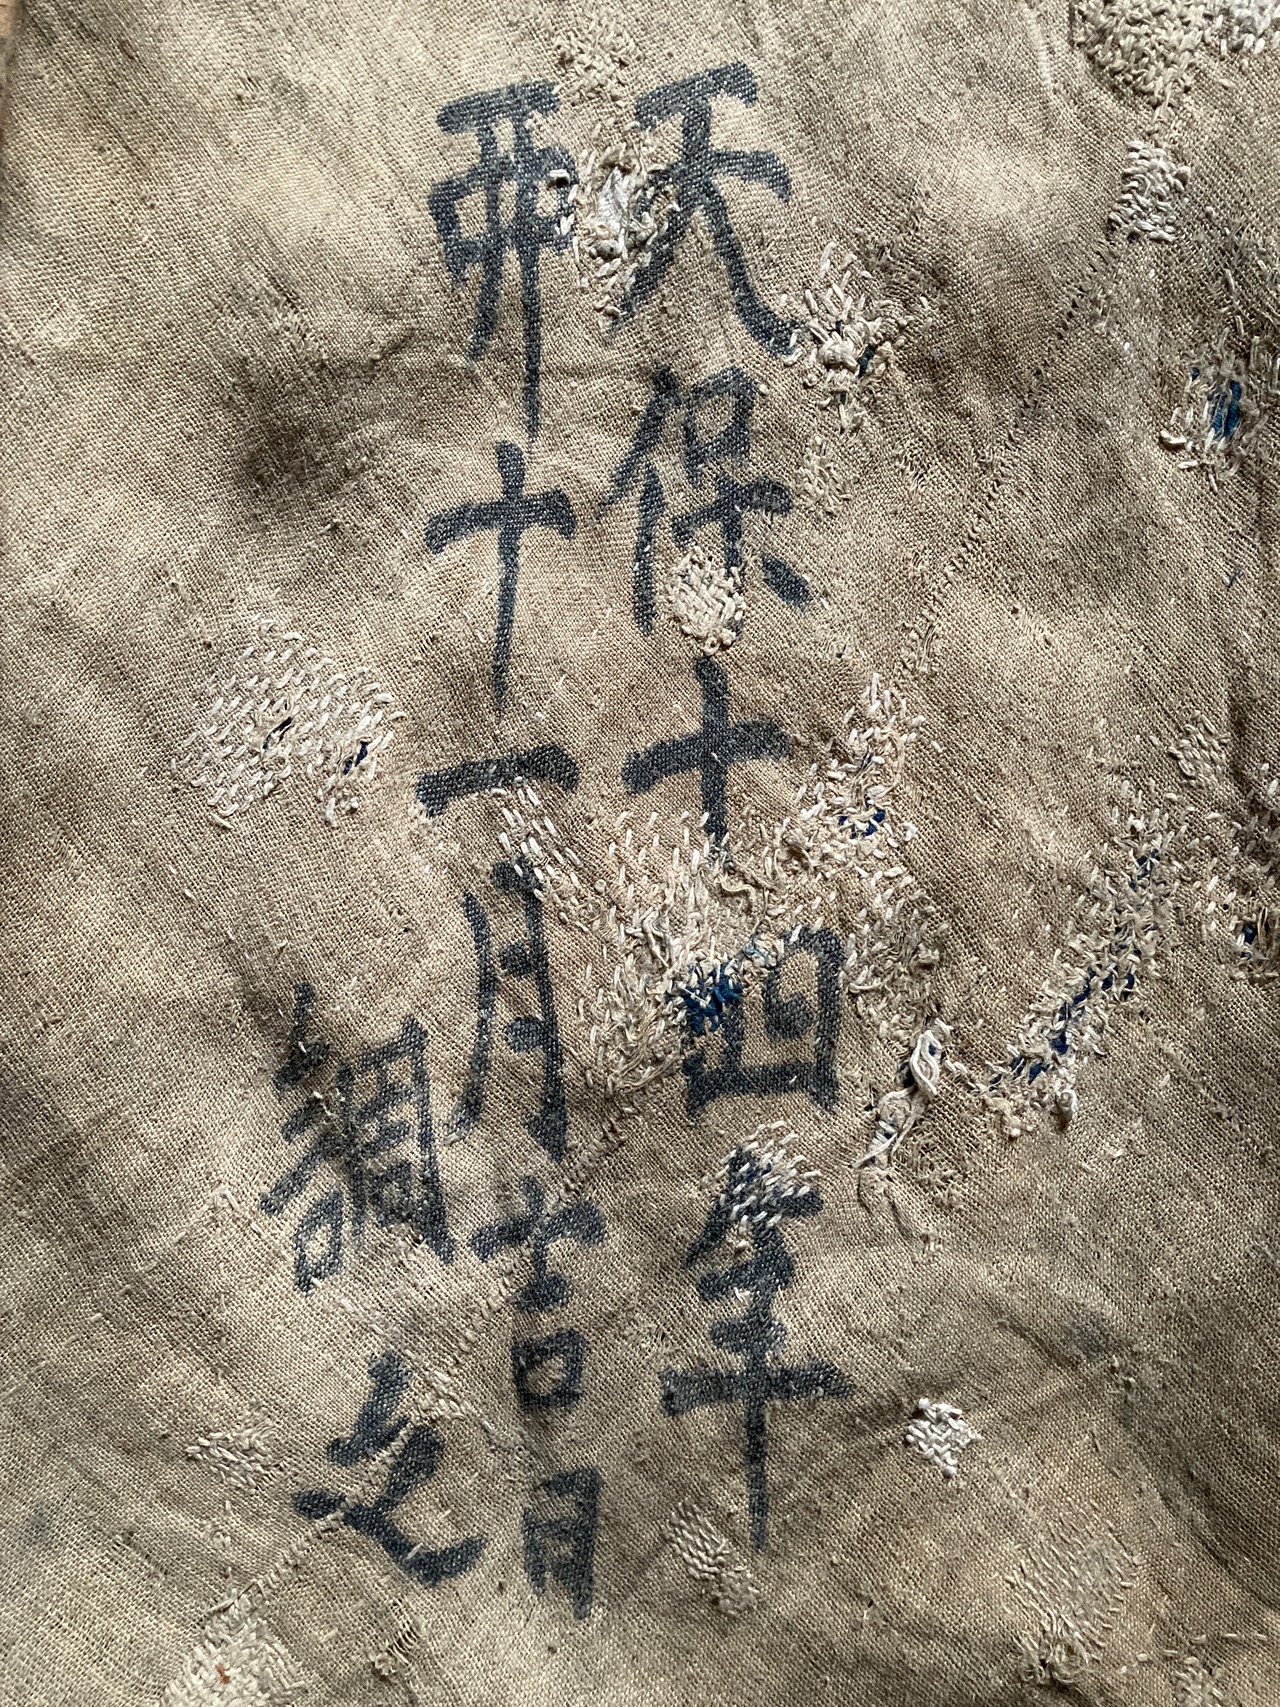 天保十四年
卯十一月吉日
調之